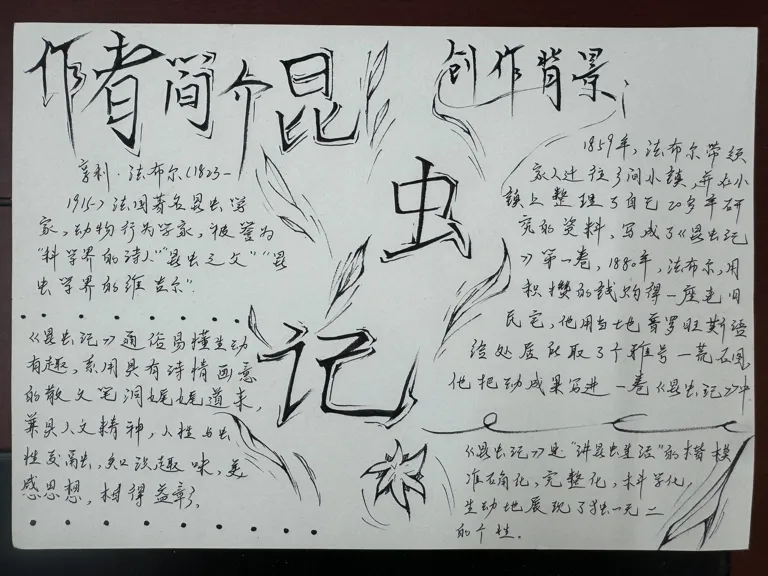 作者简介
昆
虫
记
亨利·法布尔(1823-
1915)法国著名昆虫学
家,动物行为学家,被誉为
"科学界的诗人""昆虫之父""昆
虫学界的维吉尔".
《昆虫记》通俗易懂生动
有趣,采用具有诗情画意
的散文笔调娓娓道来,
兼具人文精神,人性与虫
性交融,知识趣味,美
感思想,相得益彰.
创作背景
1859年,法布尔带领
家人迁往了间小镇,并在小
镇上整理了自己20多年研
究的资料,写成了《昆虫记
》第一卷,1880年,法布尔用
积攒的钱购得一座老旧
民宅,他用当地普罗旺斯语
给处居所取了个雅号一荒石园
他把动成果写进一卷《昆虫记》中
《昆虫记》是"讲昆虫生活"的楷模
准确化,完整化,科学化,
生动地展现了独一无二
的个性.